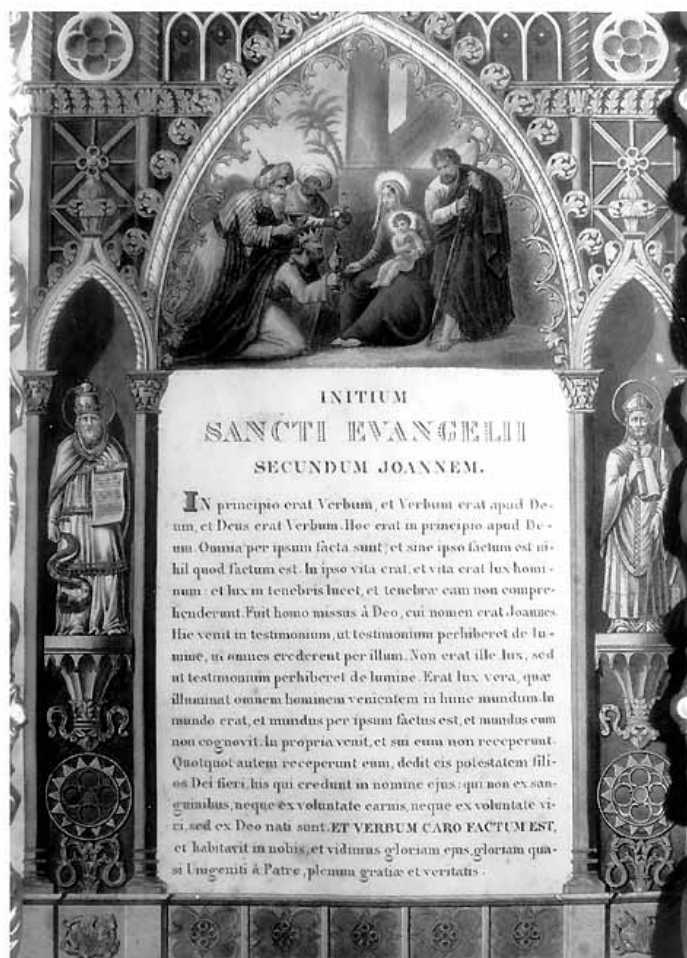 INITIUM
SANCTI EVANGELII
SECUNDUM JOANNEM.
IN principio erat Verbum, et Verbum erat apud De-
um, et Deus erat Verbum. Hoc erat in principio apud De-
um. Omnia per ipsum facta sunt; et sine ipso factum est ni-
hil quod factum est. In ipso vita erat, et vita erat lux homi-
num: et lux in tenebris lucet, et tenebræ eam non compre-
henderunt. Fuit homo missus à Deo, cui nomen erat Joannes.
Hic venit in testimonium, ut testimonium perhiberet de lu-
mine, ut omnes crederent per illum. Non erat ille lux, sed
ut testimonium perhiberet de lumine. Erat lux vera, quæ
illuminat omnem hominem venientem in hunc mundum. In
mundo erat, et mundus per ipsum factus est, et mundus eum
non cognovit. In propria venit, et sui eum non receperunt.
Quotquot autem receperunt eum, dedit eis potestatem fili-
os Dei fieri, his qui credunt in nomine ejus: qui non ex san-
guinibus, neque ex voluntate carnis, neque ex voluntate vi-
ri, sed ex Deo nati sunt. ET VERBUM CARO FACTUM EST,
et habitavit in nobis, et vidimus gloriam ejus, gloriam qua-
si Unigeniti à Patre, plenum gratiæ et veritatis.